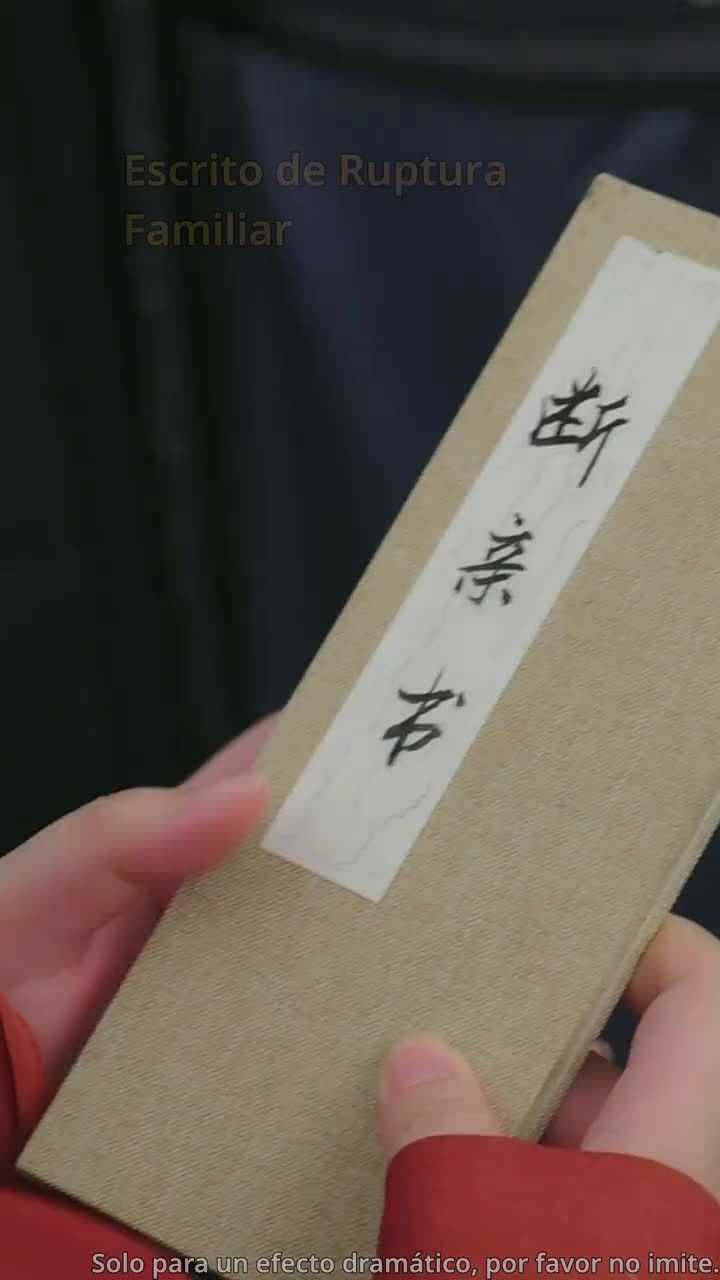 Escrito de Ruptura
Familiar
断亲书
Solo para un efecto dramático, por favor no imite.